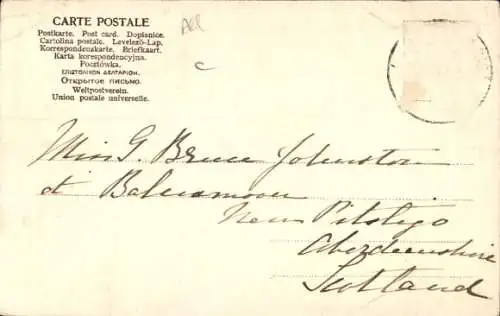 CARTE POSTALE
Postkarte. Post card. Dopisnice.
Cartolina postale. Levelező-Lap.
Korrespondenzkarte. Briefkaart.
Karta korespondencyjna.
Pocztówka.
ΕΠΙΣΤΟΛΙΚΟΝ ΔΕΛΤΑΡΙΟΝ.
Открытое письмо.
Weltpostverein.
Union postale universelle.
Miss G. Bruce Johnston
at
New Pitsligo
Aberdeenshire
Scotland